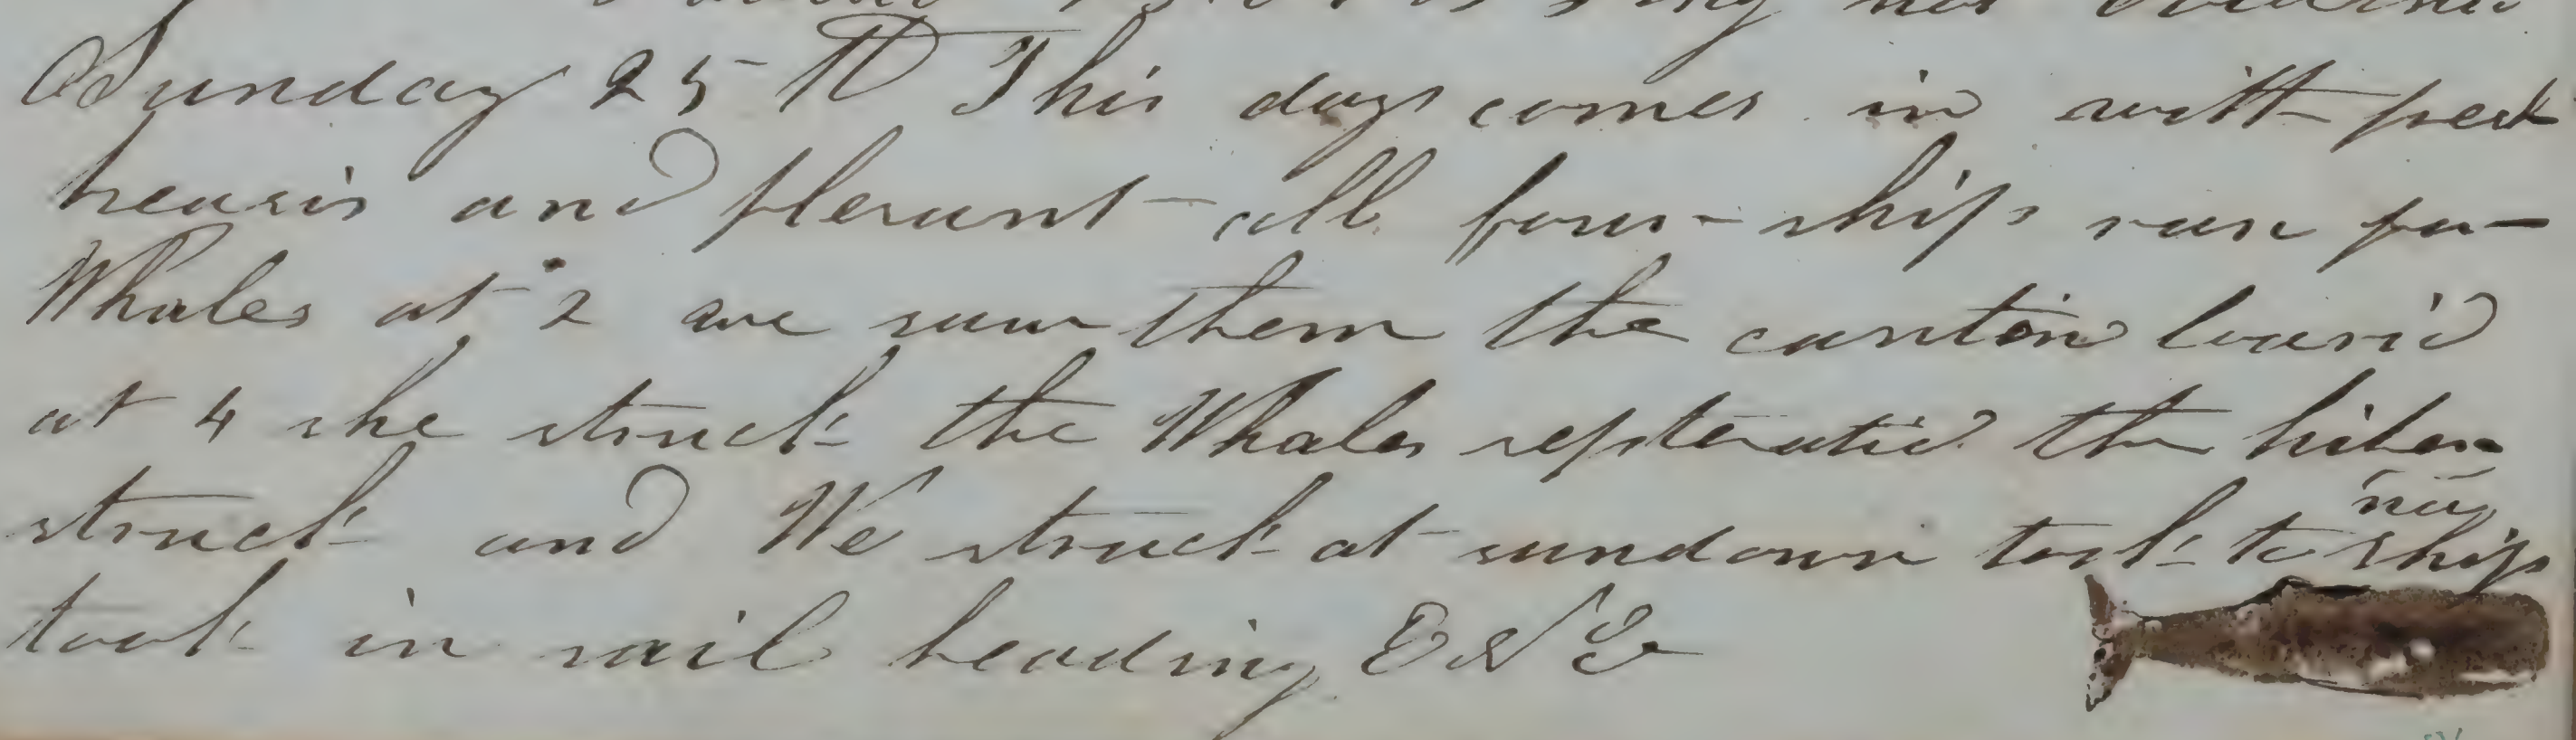 Sunday 25th This day comes in with
and plesant all four ships run for
Whales at 2 we saw them the canton lowrid
at 4 she struck the Whales the hiber
nia
struck and We struck at sundown took to ship
took in sail heading E N E